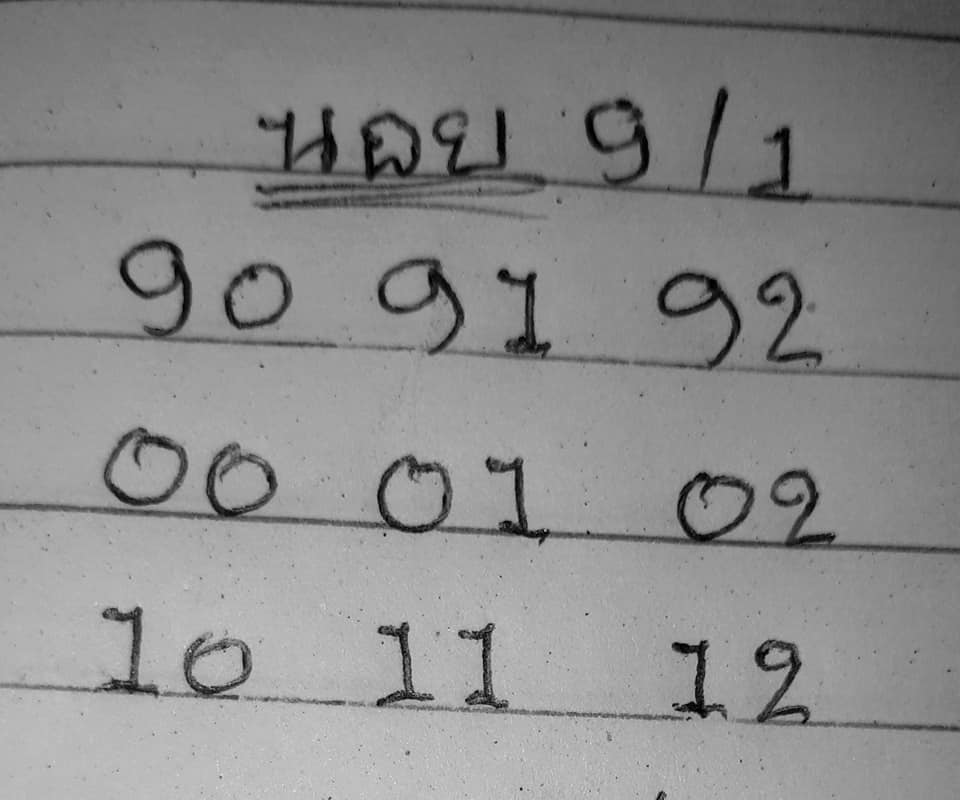 นอย 9/1
90 91 92
00 01 02
10 11 12